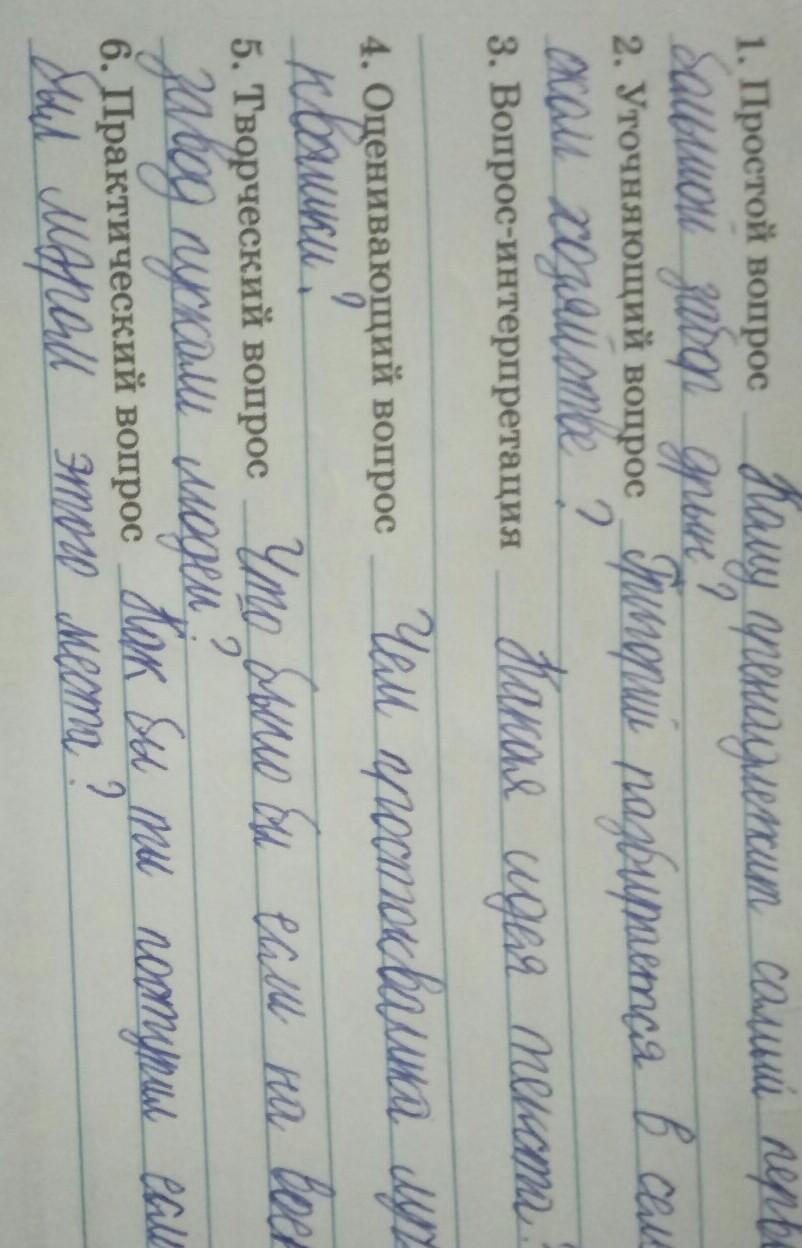 1. Простой вопрос Кому принадлежит самый перв
большой забор
2. Уточняющий вопрос Григорий разбирается в сел
ском хозяйстве?
3. Вопрос-интерпретация Какая идея текста?
4. Оценивающий вопрос Чем простоквашка луч
квашки?
5. Творческий вопрос Что было бы если на вое
завод пускали людей?
6. Практический вопрос Как бы ты поступил есл
был мэром этого места?